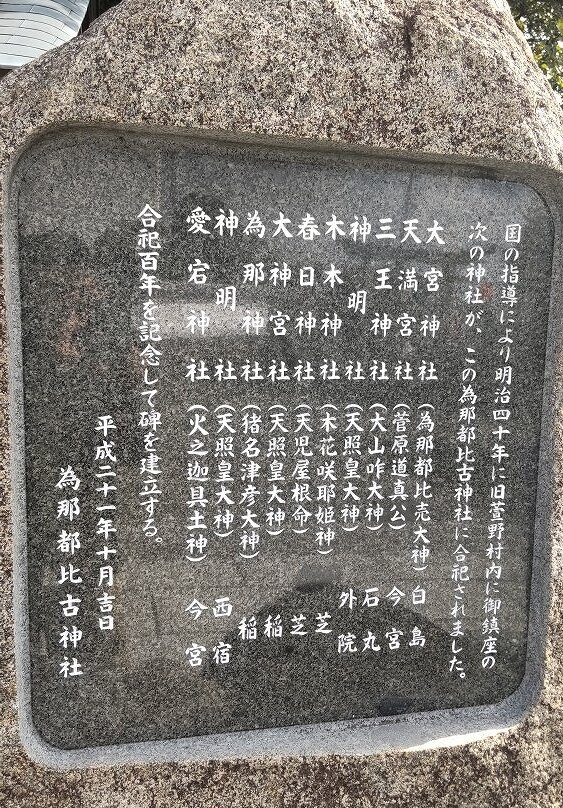 国の指導により明治四十年に旧萱野村内に御鎮座の
次の神社が、この為那都比古神社に合祀されました。
大宮神社（為那都比売大神）白島
天満宮社（菅原道真公）今宮
三王神社（大山咋大神）石丸
神明社（天照皇大神）外院
木本神社（木花咲耶姫神）芝
春日神社（天児屋根命）芝
大神宮社（天照皇大神）稲
為那神社（猪名津彦大神）稲
神明社（天照皇大神）西宿
愛宕神社（火之迦具土神）今宮
合祀百年を記念して碑を建立する。
平成二十一年十月吉日
為那都比古神社